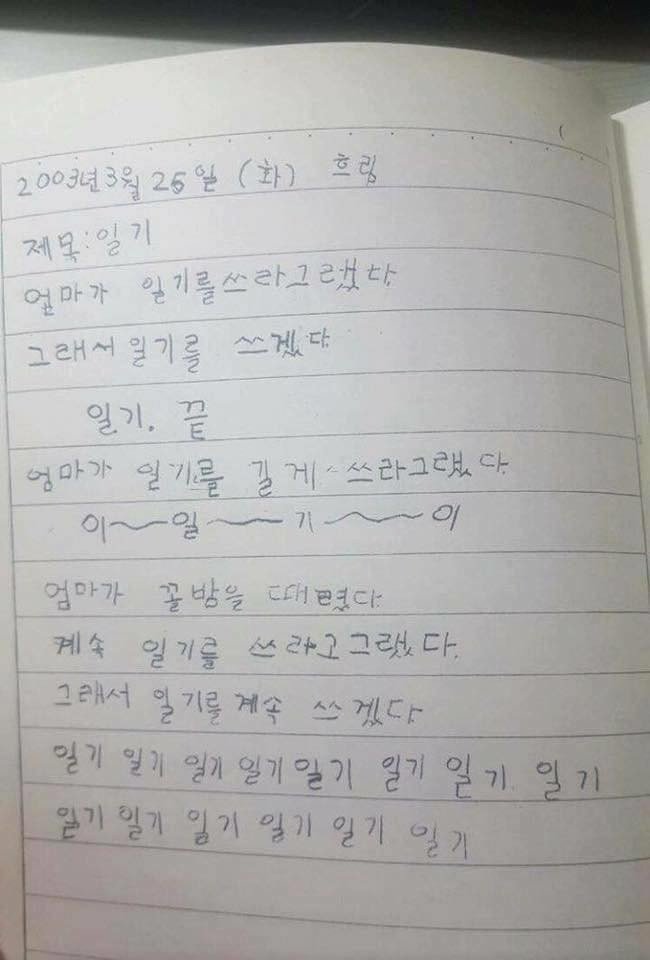 2003년3월 25일 (화) 흐림
제목:일기
엄마가 일기를쓰라그랬다
그래서일기를 쓰겠다
일기. 끝
엄마가 일기를 길게 쓰라그랬다
이~일~기~이
엄마가 꿀밤을 때렸다
계속 일기를 쓰라고그랬다.
그래서 일기를계속 쓰겠다
일기 일기 일기 일기 일기 일기 일기 일기
일기 일기 일기 일기 일기 일기